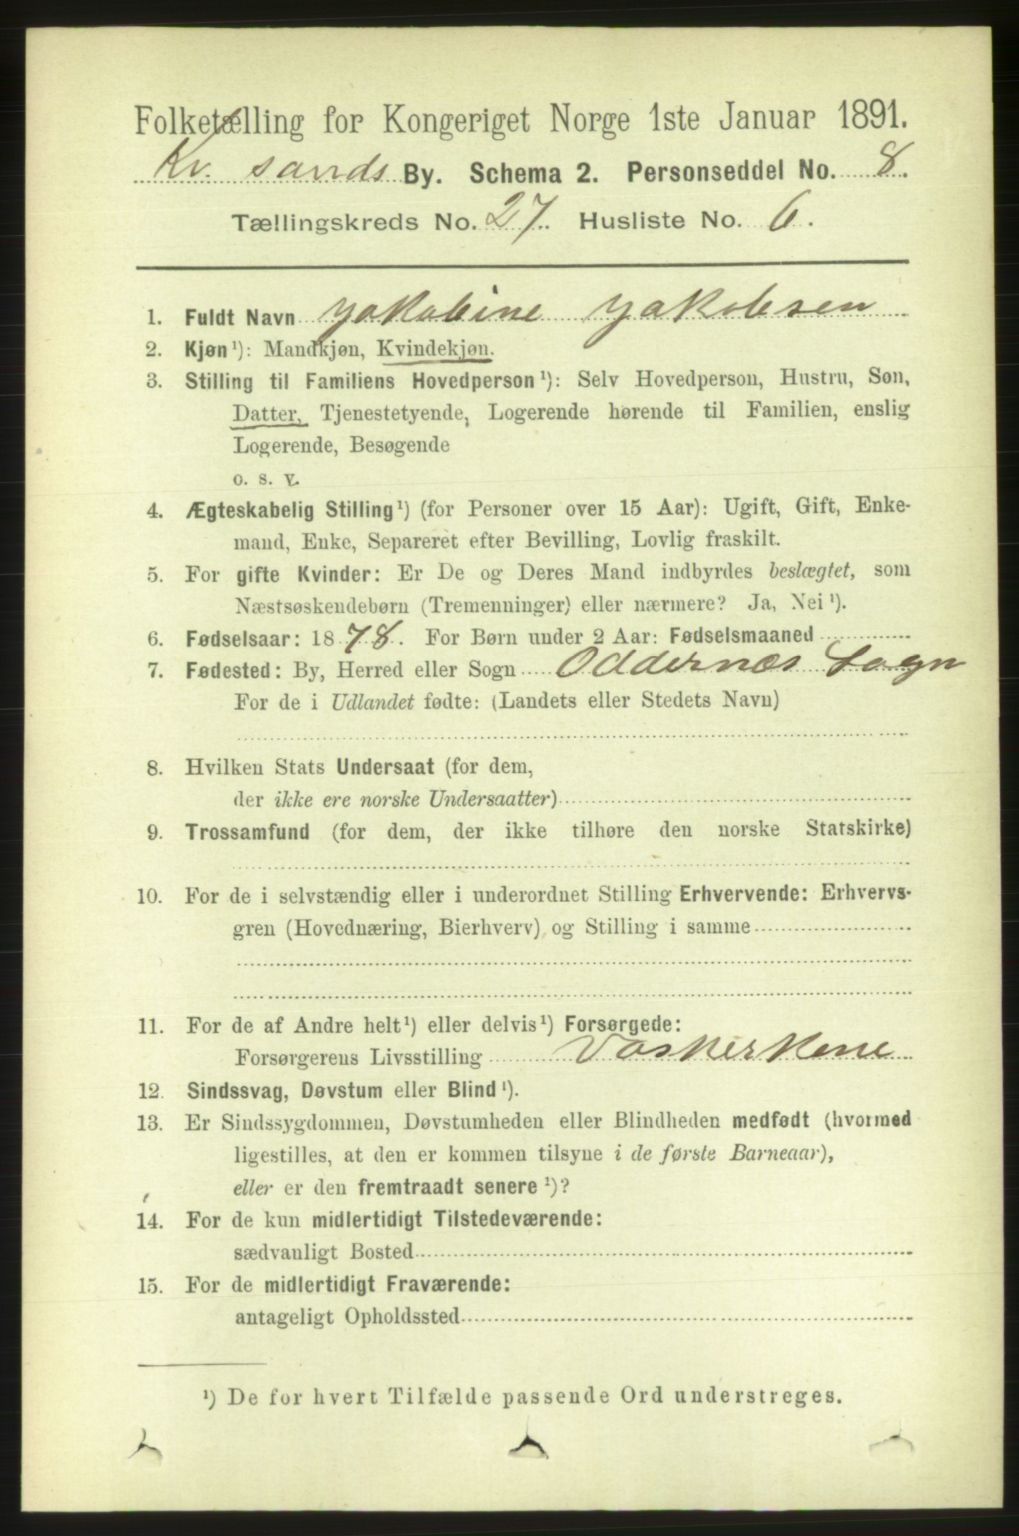 Folketælling for Kongeriget Norge 1ste Januar 1891.
Kr. sands By. Schema 2. Personseddel No. 8.
Tællingskreds No. 27. Husliste No. 6.
1. Fuldt Navn Yakobine Yakobsen
2. Kjøn¹): Mandkjøn, Kvindekjøn.
3. Stilling til Familiens Hovedperson¹): Selv Hovedperson, Hustru, Søn,
Datter, Tjenestetyende, Logerende hørende til Familien, enslig
Logerende, Besøgende
o. s. v.
4. Ægteskabelig Stilling¹) (for Personer over 15 Aar): Ugift, Gift, Enke-
mand, Enke, Separeret efter Bevilling, Lovlig fraskilt.
5. For gifte Kvinder: Er De og Deres Mand indbyrdes beslægtet, som
Næstsøskendebørn (Tremenninger) eller nærmere? Ja, Nei¹).
6. Fødselsaar: 1878. For Børn under 2 Aar: Fødselsmaaned
7. Fødested: By, Herred eller Sogn Oddernæs Sogn
For de i Udlandet fødte: (Landets eller Stedets Navn)
8. Hvilken Stats Undersaat (for dem,
der ikke ere norske Undersaatter)
9. Trossamfund (for dem, der ikke tilhøre den norske Statskirke)
10. For de i selvstændig eller i underordnet Stilling Erhvervende: Erhvervs-
gren (Hovednæring, Bierhverv) og Stilling i samme
11. For de af Andre helt¹) eller delvis¹) Forsørgede:
Forsørgerens Livsstilling Vaskerkone
12. Sindssvag, Døvstum eller Blind¹).
13. Er Sindssygdommen, Døvstumheden eller Blindheden medfødt (hvormed
ligestilles, at den er kommen tilsyne i de første Barneaar),
eller er den fremtraadt senere¹)?
14. For de kun midlertidigt Tilstedeværende:
sædvanligt Bosted
15. For de midlertidigt Fraværende:
antageligt Opholdssted
¹) De for hvert Tilfælde passende Ord understreges.